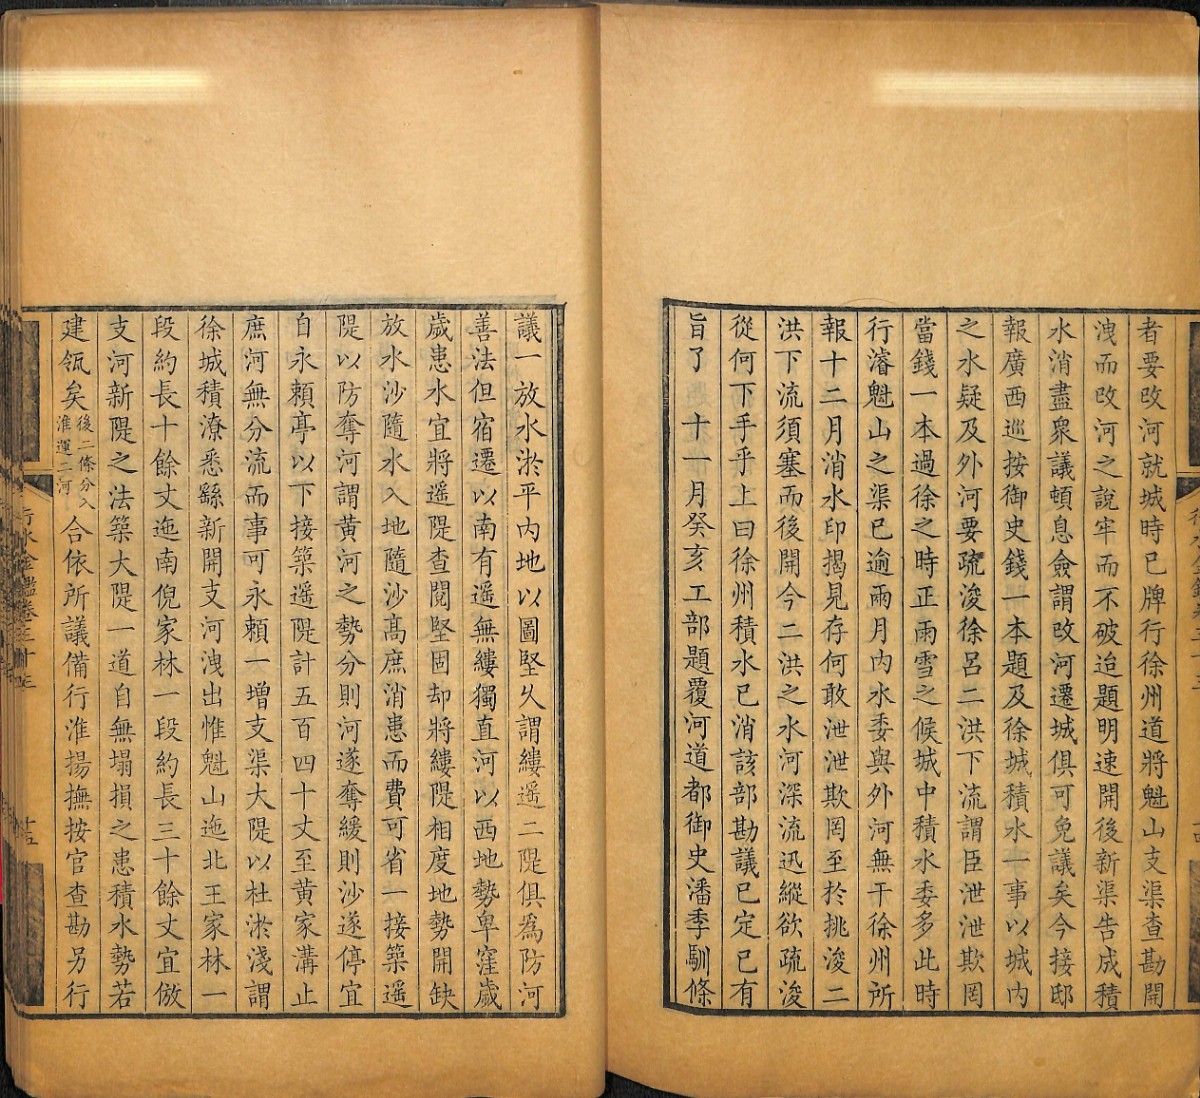 者要改河就城時已牌行徐州道將魁山支渠查勘開
洩而改河之說牢而不破迨題明速開後新渠告成積
水消盡衆議頓息僉謂改河遷城俱可免議矣今接邸
報廣西巡按御史錢一本題及徐城積水一事以城内
之水疑及外河要疏浚徐呂二洪下流謂臣泄泄欺罔
當錢一本過徐之時正雨雪之候城中積水委多此時
行濬魁山之渠已逾兩月内水委與外河無干徐州所
報十二月消水印揭見存何敢泄泄欺罔至於挑浚二
洪下流須塞而後開今二洪之水河深流迅縱欲疏浚
從何下手乎上曰徐州積水已消該部勘議已定已有
旨了 十一月癸亥工部題覆河道都御史潘季馴條
議一放水淤平内地以圖堅久謂縷遥二隄俱爲防河
善法但宿遷以南有遥無縷獨直河以西地勢卑窪歲
歲患水宜將遥隄查閱堅固却將縷隄相度地勢開缺
放水沙隨水入地隨沙髙庶消患而費可省一接築遥
隄以防奪河謂黄河之勢分則河遂奪緩則沙遂停宜
自永頼亭以下接築遥隄計五百四十丈至黄家溝止
庶河無分流而事可永頼一增支渠大隄以杜淤淺謂
徐城積潦悉繇新開支河洩出惟魁山迤北王家林一
段約長十餘丈迤南倪家林一段約長三十餘丈宜倣
支河新隄之法築大隄一道自無塌損之患積水勢若
建瓴矣後二條分入淮運二河合依所議備行淮揚撫按官查勘另行
行水金鑑卷三十三
十五